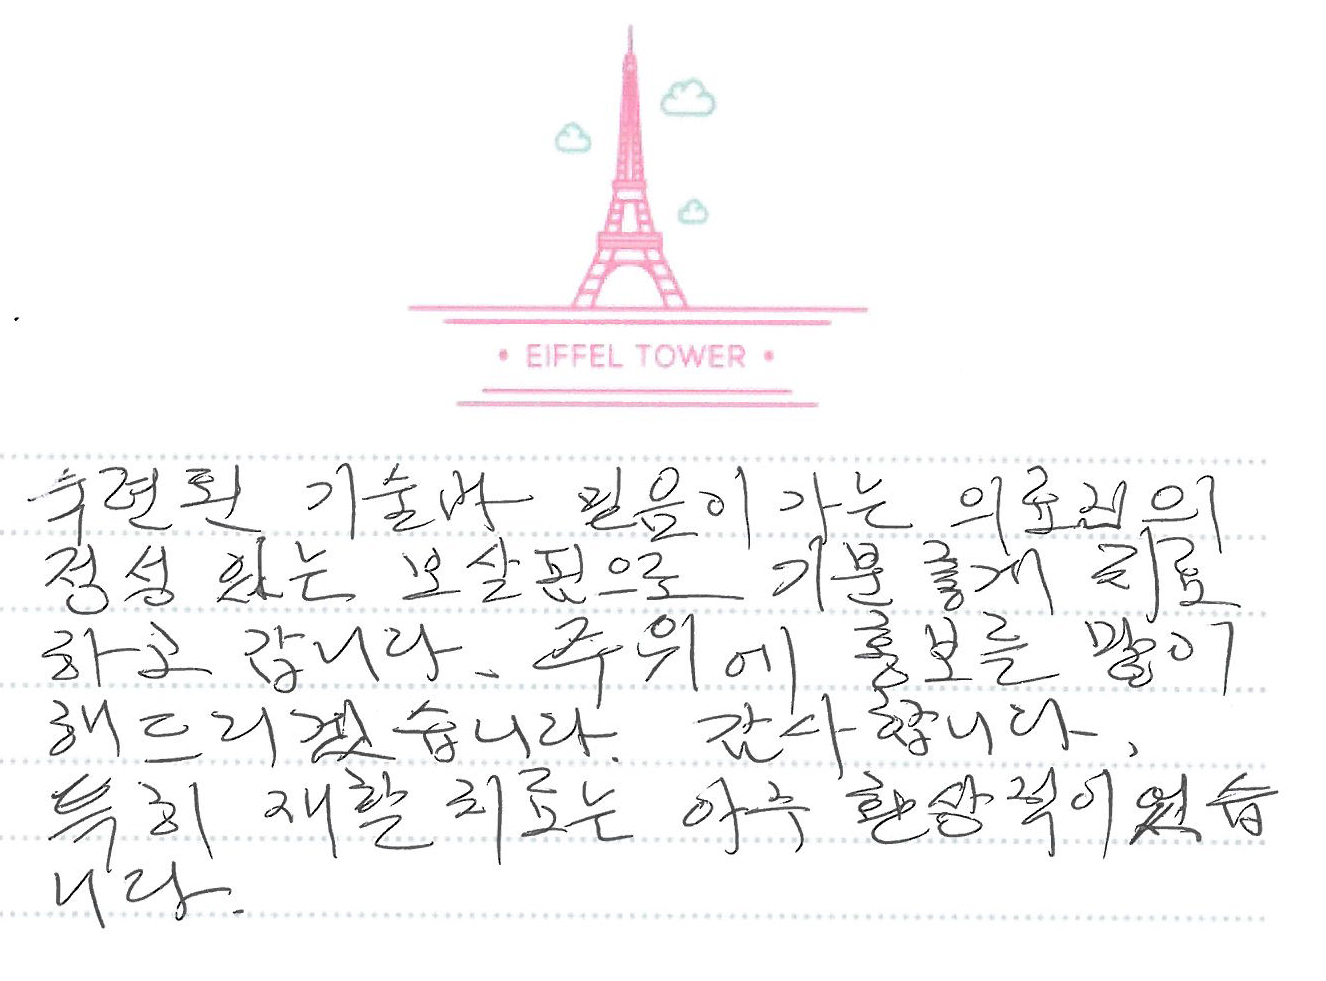 • EIFFEL TOWER •
수련된 기술과 믿음이 가는 의료진의
정성 있는 보살핌으로 기분 좋게 치료
하고 갑니다. 주위에 홍보를 많이
해드리겠습니다. 감사합니다.
특히 재활 치료는 아주 환상적이었습
니다.